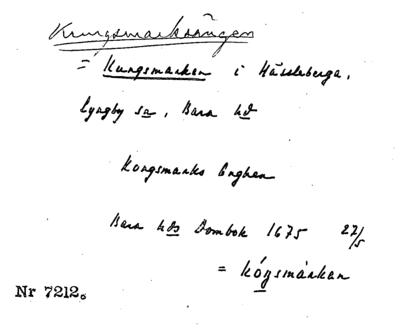 Kungsmarksängen
= Kungsmarken i Hässleberga,
Lyngby sn, Bara hd
Kongsmarks Enghen
Bara hds Dombok 1675 27/5
= kógsmárkan
Nr 7212.